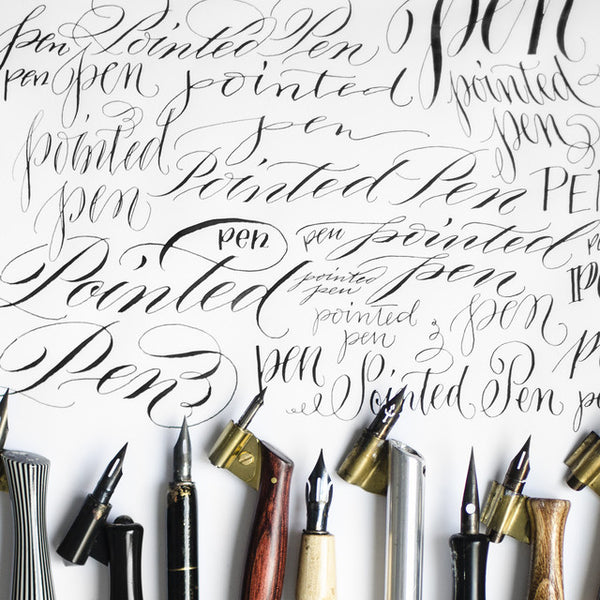 pen Pointed Pen pen
pen pen pointed pointed
pointed pen pen
pen Pointed Pen PEN
pen pen pointed
Pointed pointed pen pen
pointed pen pen
Pen pen Pointed Pen